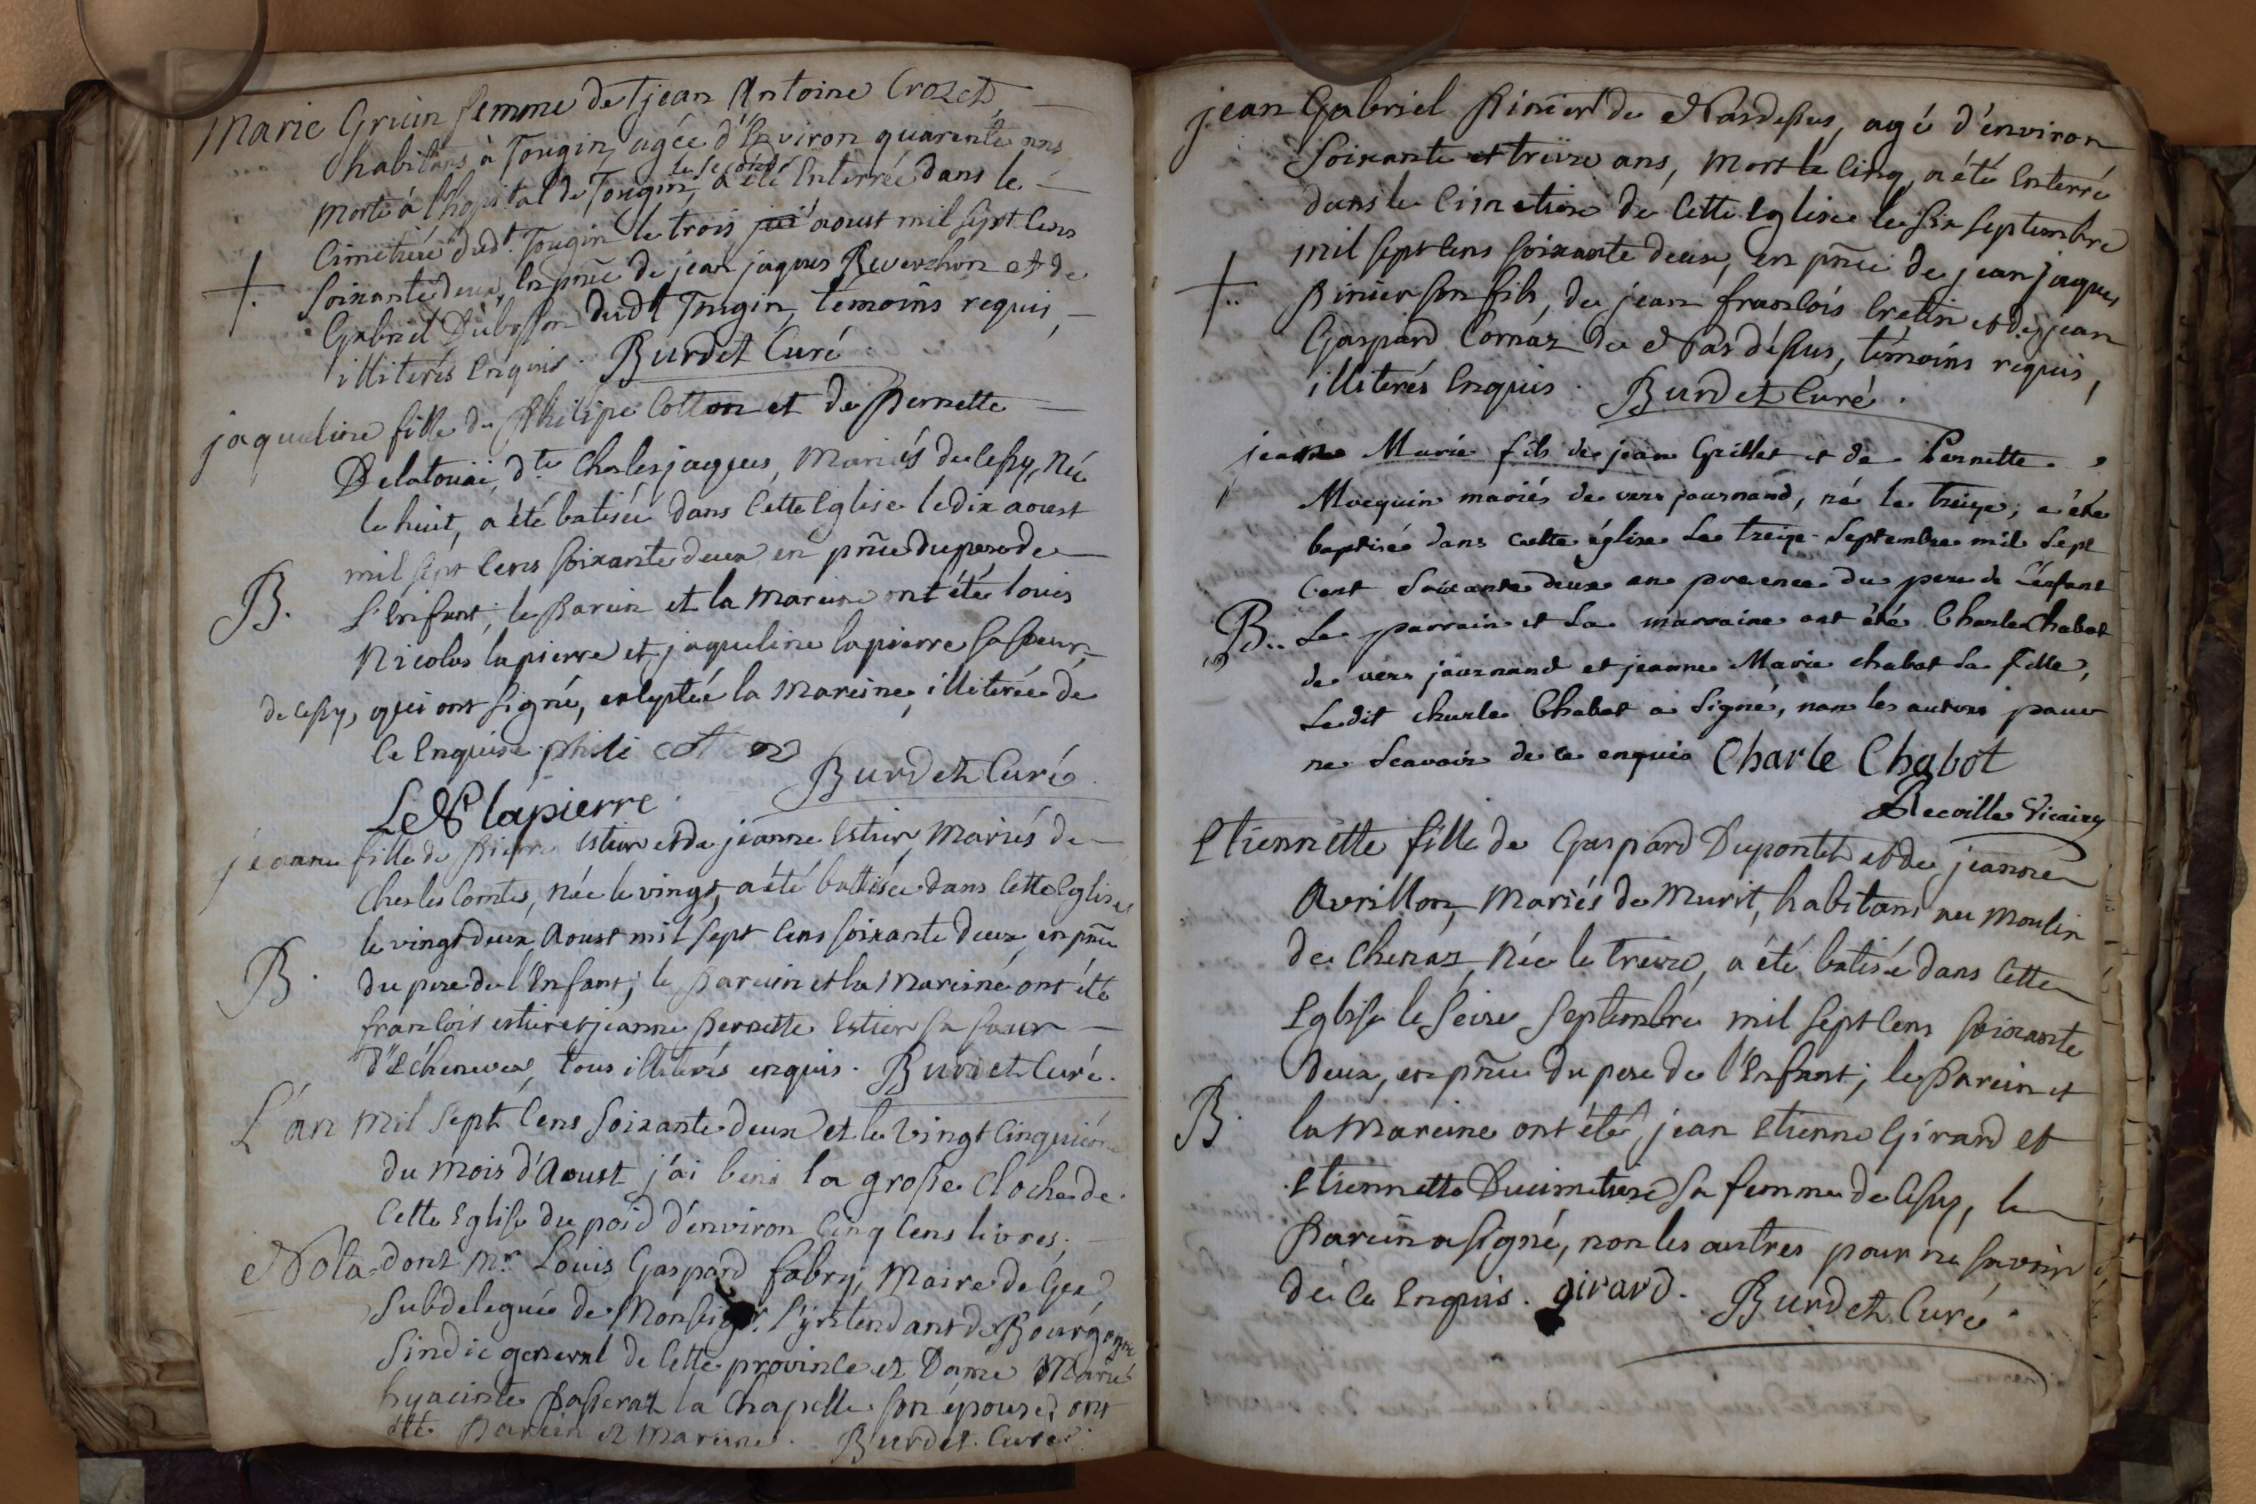 Marie Gricin femme de jean Antoine Crozet
habitans à Tougin, agée d'Environ quarente ans
le second
morte à l'hopital de Tougin, a été Enterrée dans le
Cimetiére dudt. Tougin le trois aoust mil sept cens
Soixante deux, en pñce de jean jaques Reverchon et de
Gabriel Dubosson dudt Tougin, témoins requis,
illiterés Enquis. Burdet Curé
jaqueline fille de Philipe Cotton et de Pernette
Delatouai, dte Charles jaques, Mariés de Cessy, Née
le huit, a été batisée dans Cette Eglise le dix aoust
mil sept Cens soixante deux en pñce du pere de
B. l'Enfant; le Parein et la Mareine ont été louis
Nicolas lapierre et jaqueline lapierre sa soeur,
de cessy, qui ont signé, exceptée la Mareine, illiterée de
ce Enquise. phili cotton
Burdet Curé.
LN lapierre.
jeanne fille de Pierre Estier et de jeanne Estier Mariés de
Ches les Comtes, Née le vingt, a été battisée dans Cette Eglise
le vingt deux Aoust mil sept Cens soixante deux, en pñce
B. du pere de l'Enfant; le Parein et la Mareine ont été
francois estier et jeanne Pernette Estier sa soeur
d'Echenevex, tous illiterés enquis. Burdet Curé.
L'an mil sept Cens soixante deux et le vingt cinquiéme
du mois d'Aoust j'ai beni la grosse Cloche de
Cette Eglise du poid d'environ Cinq Cens livres;
Nota dont Mr. Louis Gaspard fabry, Maire de Gex
Subdelegué de Monseigr. l'yntendant de Bourgogne
Sindic general de Cette province et Dame Marie
hyacinte Passerat la Chapelle son épouse, ont
été Parein et Mareine. Burdet Curé.
jean Gabriel Pinier de Nasdessus, agé d'environ
Soixante et treize ans, Mort le Cinq, a été Enterré
dans le Cimetiere de Cette Eglise le six septembre
mil sept cens soixante deux, en pñce de jean jaques
Pinier son fils, de jean francois Cretin et de jean
Gaspard Cornaz de Nasdéssus, témoins requis,
illiterés Enquis. Burdet Curé.
jeanne Marie fils de jean Grillet et de Pernette
Moequin mariés de vers journand, né le treize, a été
baptisée dans cette église Le treize Septembre mil Sept
Cent Soixante deux en presence du pere de L'enfant
B.. Le parrain et La marraine ont été Charle Chabot
de vers journand et jeanne Marie chabot sa fille,
Ledit charle Chabot a Signé, non les autres pour
ne Scavoir de ce enquis Charle Chabot
Recoille Vicaire
Etiennette fille de Gaspard Dupontet et de jeanne
Avrillon, Mariés de Murit, habitans au Moulin
de Chenaz, Née le treize, a été batisée dans Cette
Eglise le seize Septembre mil sept Cens soixante
deux, en pñce du pere de l'Enfant; le Parein et
B. la Mareine ont été jean Etienne Girard et
Etiennette Ducimetiere sa femme de Cessy, le
Parein a signé, non les autres pour ne savoir
de ce Enquis. girard. Burdet Curé.